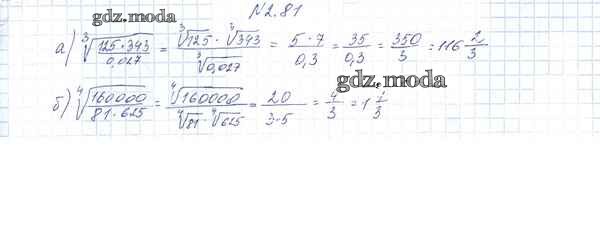 №2.81
gdz.moda
а) ∛(125·343 / 0,027) = ∛125 · ∛343 / ∛0,027 = 5·7 / 0,3 = 35 / 0,3 = 350 / 3 = 116 2/3
gdz.moda
б) ∜(160000 / 81·625) = ∜160000 / ∜81 · ∜625 = 20 / 3·5 = 4/3 = 1 1/3